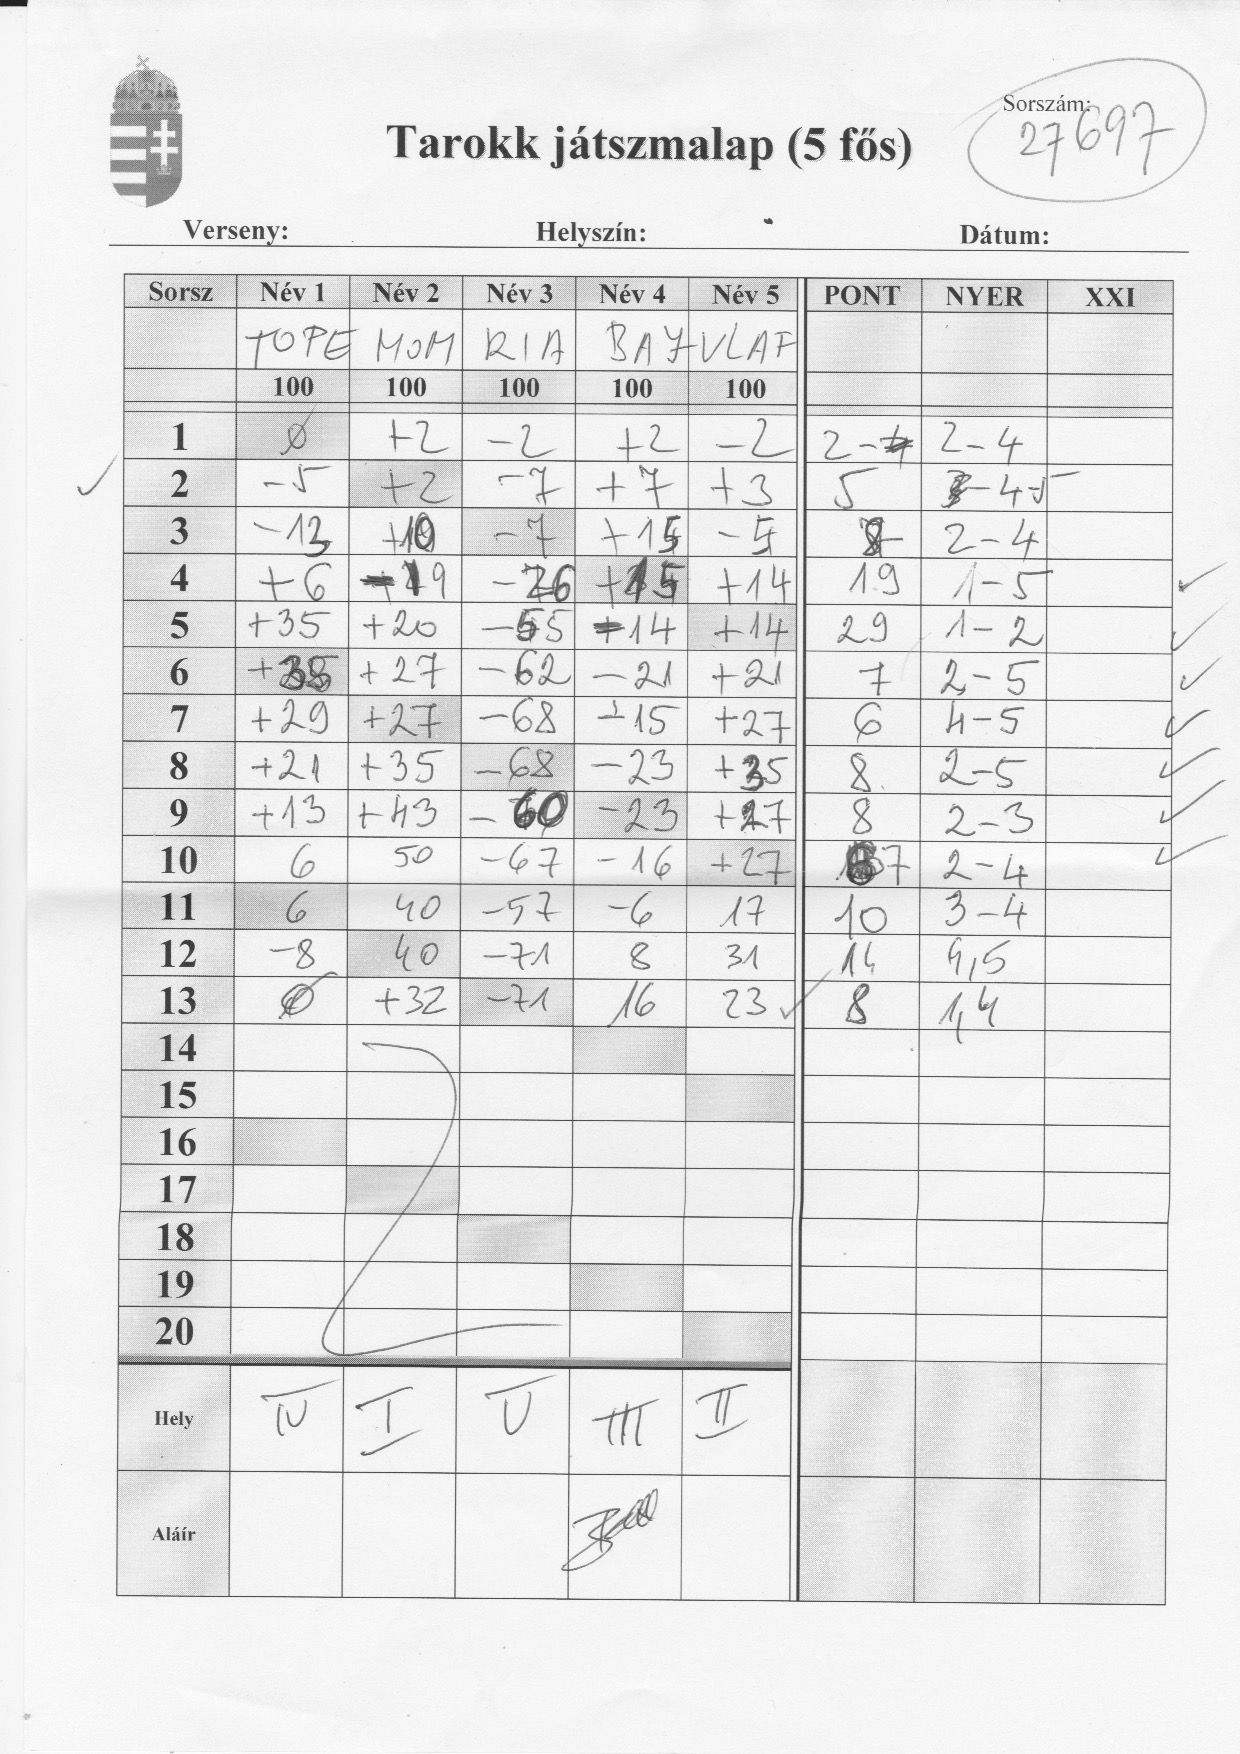 Sorszám:
27697
Tarokk játszmalap (5 fős)
Verseny: Helyszín: Dátum:
Sorsz Név 1 Név 2 Név 3 Név 4 Név 5 PONT NYER XXI
TOPE MOM RIA BAY VLAF
100 100 100 100 100
1 0 +2 -2 +2 -2 2 2-4
2 -5 +2 -7 +7 +3 5 4-5
3 -13 +10 -7 +15 -5 8 2-4
4 +6 -26 +15 +14 19 1-5
5 +35 +20 -55 -14 +14 29 1-2
6 +35 +27 -62 -21 +21 7 2-5
7 +29 +27 -68 -15 +27 6 4-5
8 +21 +35 -68 -23 +35 8 2-5
9 +13 +43 -60 -23 +27 8 2-3
10 6 50 -67 -16 +27 7 2-4
11 6 40 -57 -6 17 10 3-4
12 -8 40 -71 8 31 14 4,5
13 0 +32 -71 16 23 8 1,4
14
15
16
17
18
19
20
Hely IV I V III II
Aláír